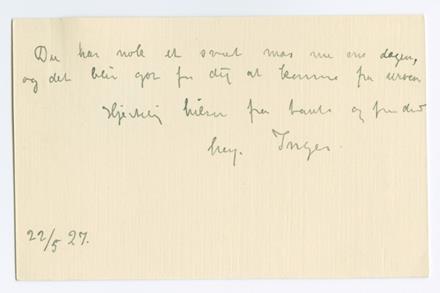 Du har nok et svært mas nu om dagen,
og det blir godt for dig at komme fra
Hjertelig hilsen fra tante og
Inger.
22/5 27.